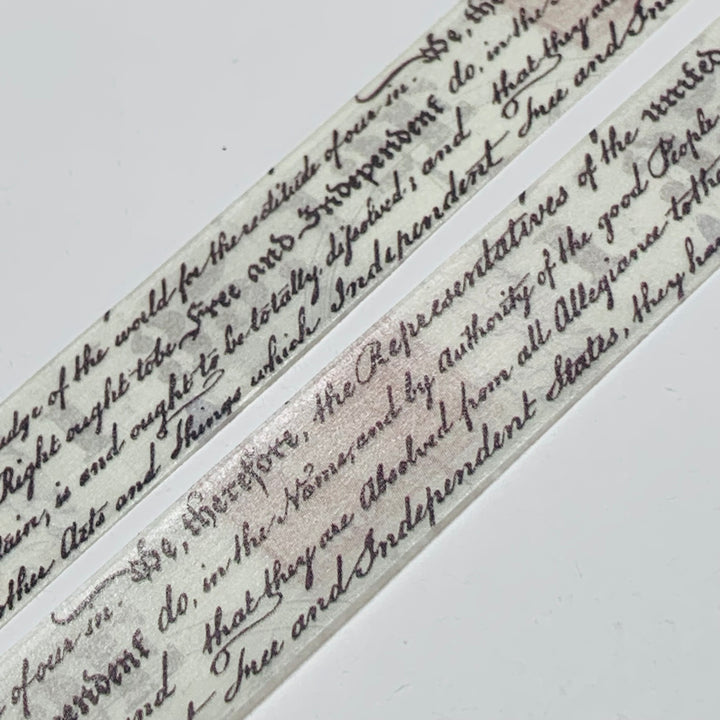 udge of the world for the rectitude of our in. We, the
Right ought to be Free and Independent do, in the
tain, is and ought to be totally dissolved; and that they are
other Acts and Things which Independent Free and In
of our in. We, therefore, the Representatives of the united
pendent do, in the Name, and by authority of the good People
and that they are Absolved from all Allegiance to the
t Free and Independent States, they ha